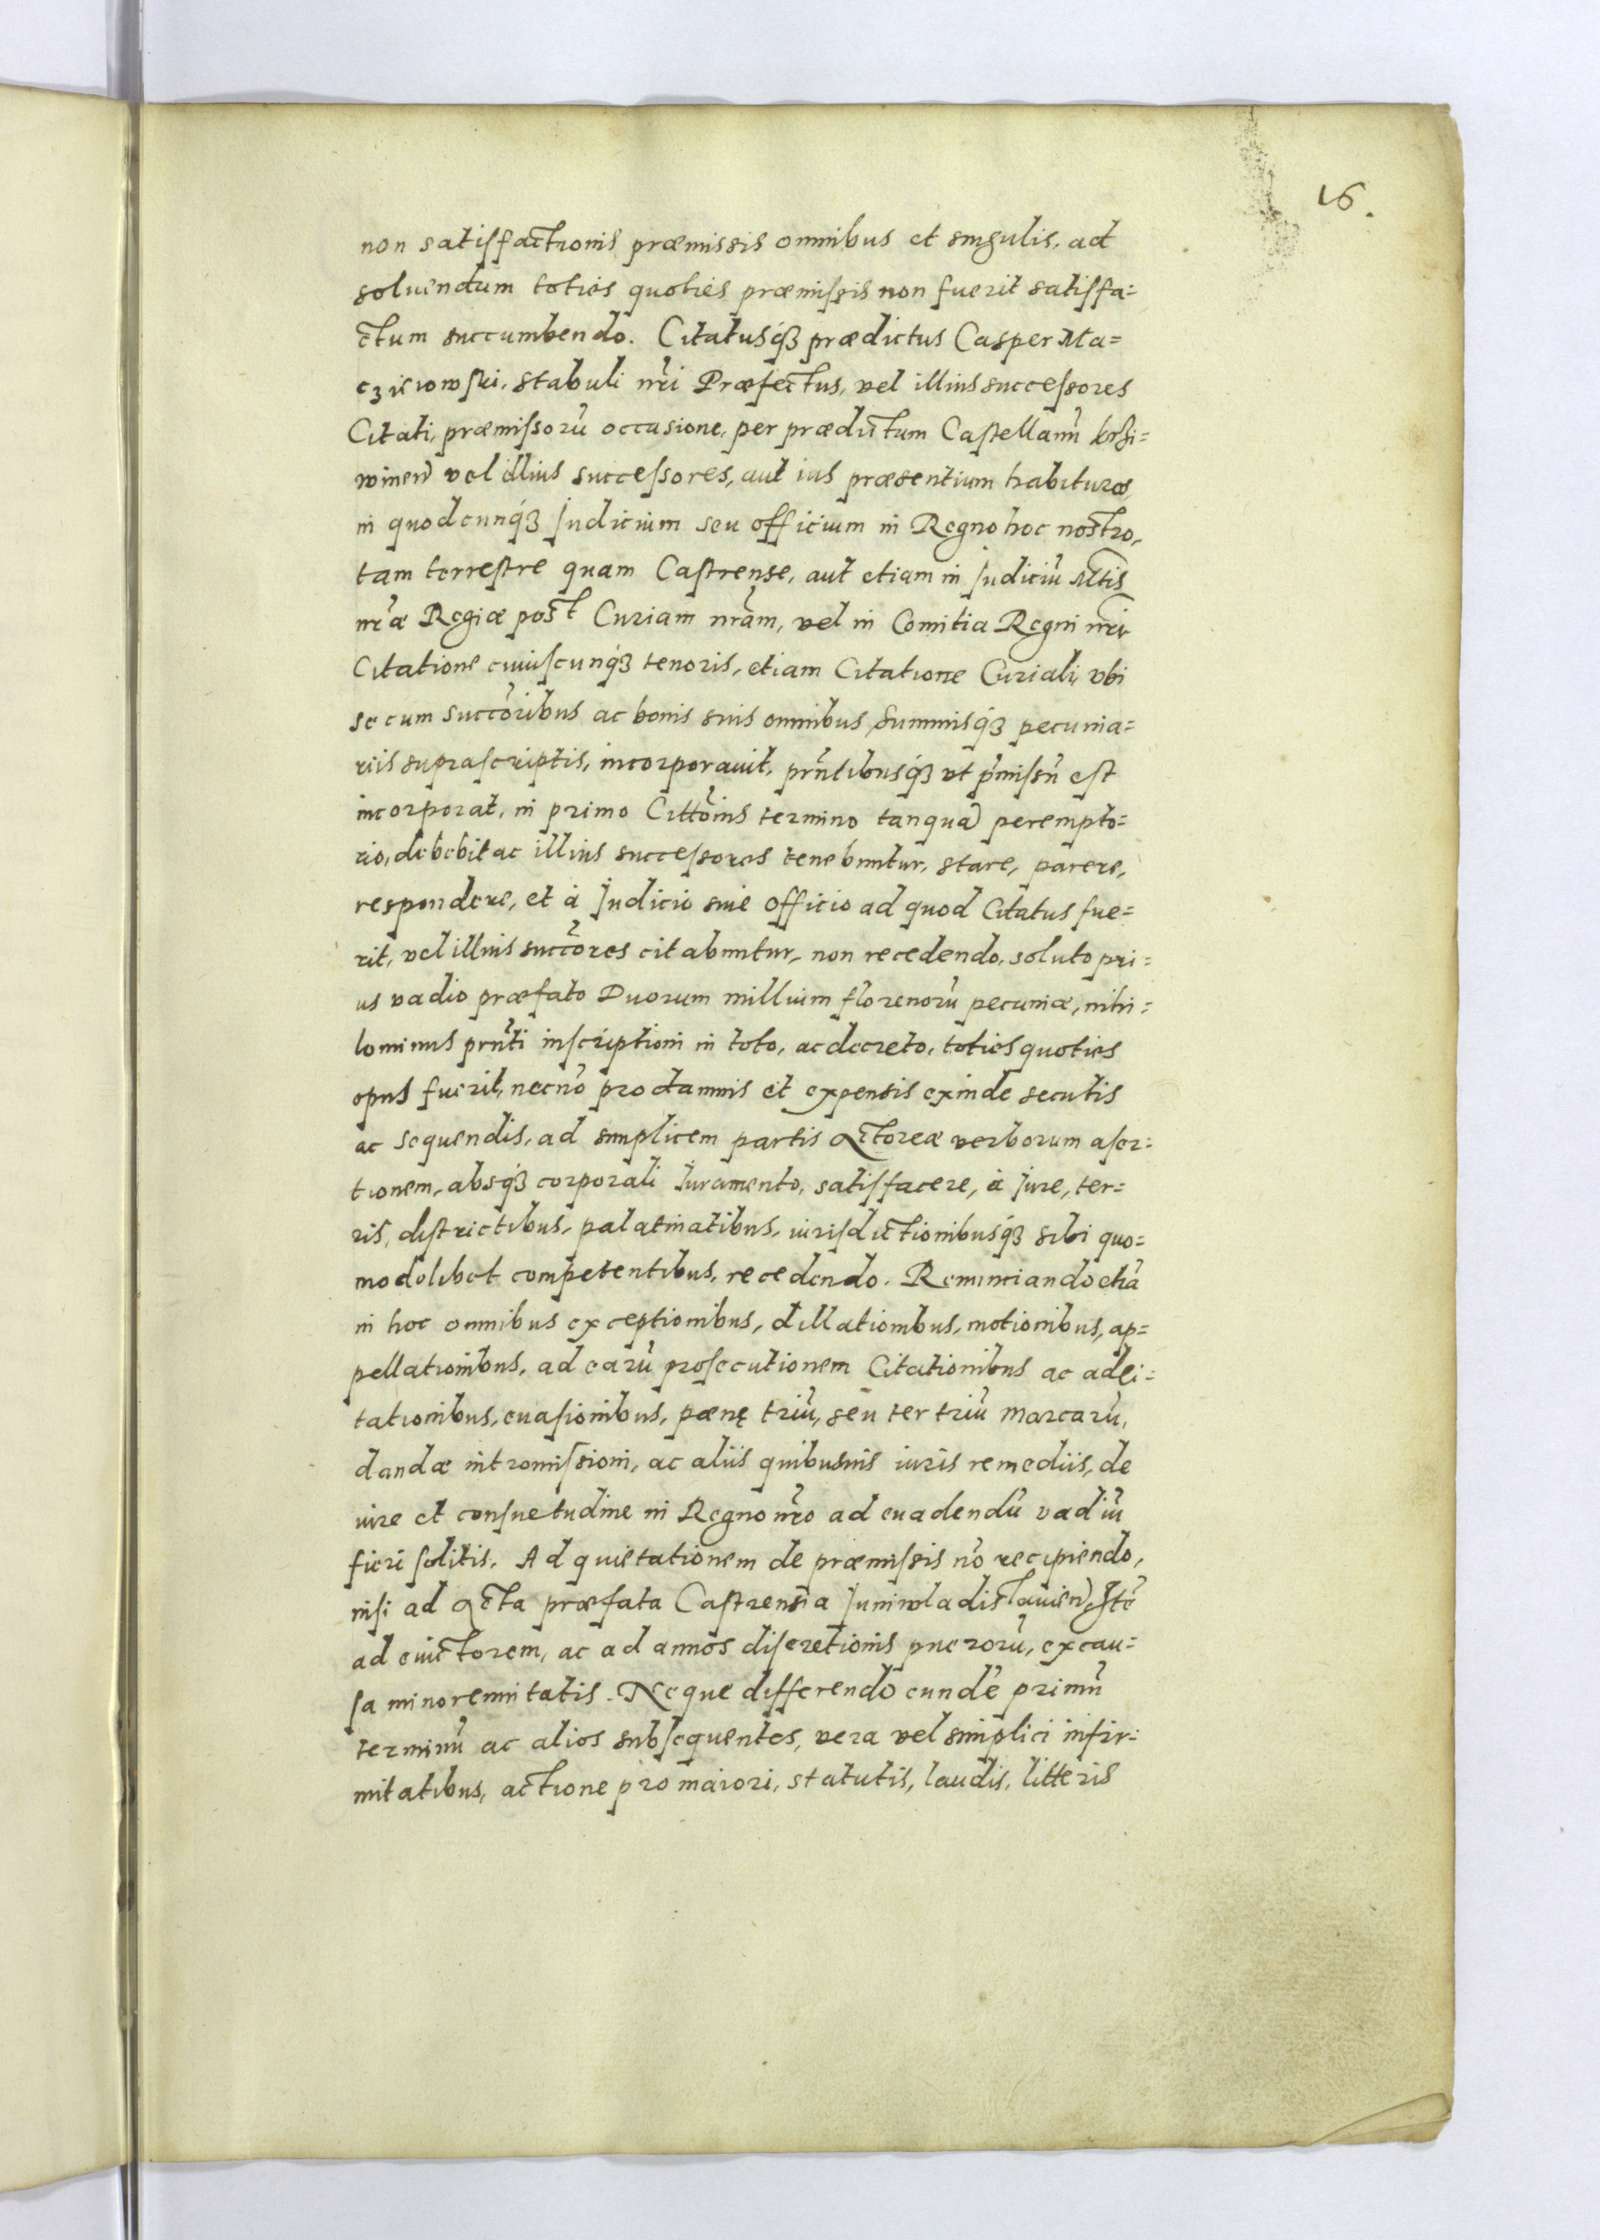 16.
non satisfactionis præmissis omnibus et singulis, ad
soluendum toties quoties præmissis non fuerit satisfa=
ctum succumbendo. Citatusq̃ȝ prædictus Casper Ma=
cziеiowski, stabuli nr̃i Præfectus, vel illius successores
Citati, præmissorũ occasione, per prædictum Castellanũ
vel illius successores, aut ius præsentium habituros
in quodcunq̃ȝ Judicium seu officium in Regno hoc nostro,
tam terrestre quam Castrense, aut etiam in Judiciũ Mtis
nr̃æ Regiæ post Curiam nr̃am, vel in Comitia Regni nr̃i
Citatione cuiuscunq̃ȝ tenoris, etiam Citatione Curiali, vbi
se cum succõribus ac bonis suis omnibus, Summisq̃ȝ pecunia=
riis suprascriptis, incorporauit, prñtibusq̃ȝ vt p̃missũ est
incorporat, in primo Cittõnis termino tanquã perempto=
rio, debebit ac illius successores tenebuntur, stare, parere,
respondere, et à Judicio siue officio ad quod Citatus fue=
rit, vel illius succõres citabuntur, non recedendo, soluto pri=
us vadio præfato Duorum millium florenorũ pecuniæ, nihi=
lominus prñti inscriptioni in toto, ac decreto, toties quoties
opus fuerit, necnõ pro damnis et expensis exinde secutis
ac sequendis, ad simplicem partis Actoreæ verborum aser=
tionem, absq̃ȝ corporali Juramento, satisfacere, à Jure, ter=
ris, districtibus, palatinatibus, iurisdictionibusq̃ȝ sibi quo=
modolibet competentibus, recedendo. Renunciando etiã
in hoc omnibus exceptionibus, dillationibus, motionibus, ap=
pellationibus, ad earũ prosecutionem Citationibus ac adci=
tationibus, euasionibus, pœnę triũ, seu ter triũ marcarũ,
dandæ intromissioni, ac aliis quibusuis iuris remediis, de
iure et consuetudine in Regno nr̃o ad euadendũ vadiũ
fieri solitis. Ad quietationem de præmissis nõ recipiendo,
nisi ad Acta præfata Castrensia Juniwladislauień
ad euictorem, ac ad annos discretionis puerorũ, ex cau=
sa minorennitatis. Neque differendo eundẽ primũ
terminũ ac alios subsequentes, vera vel simplici infir=
mitatibus, actione pro maiori, statutis, laudis, litteris